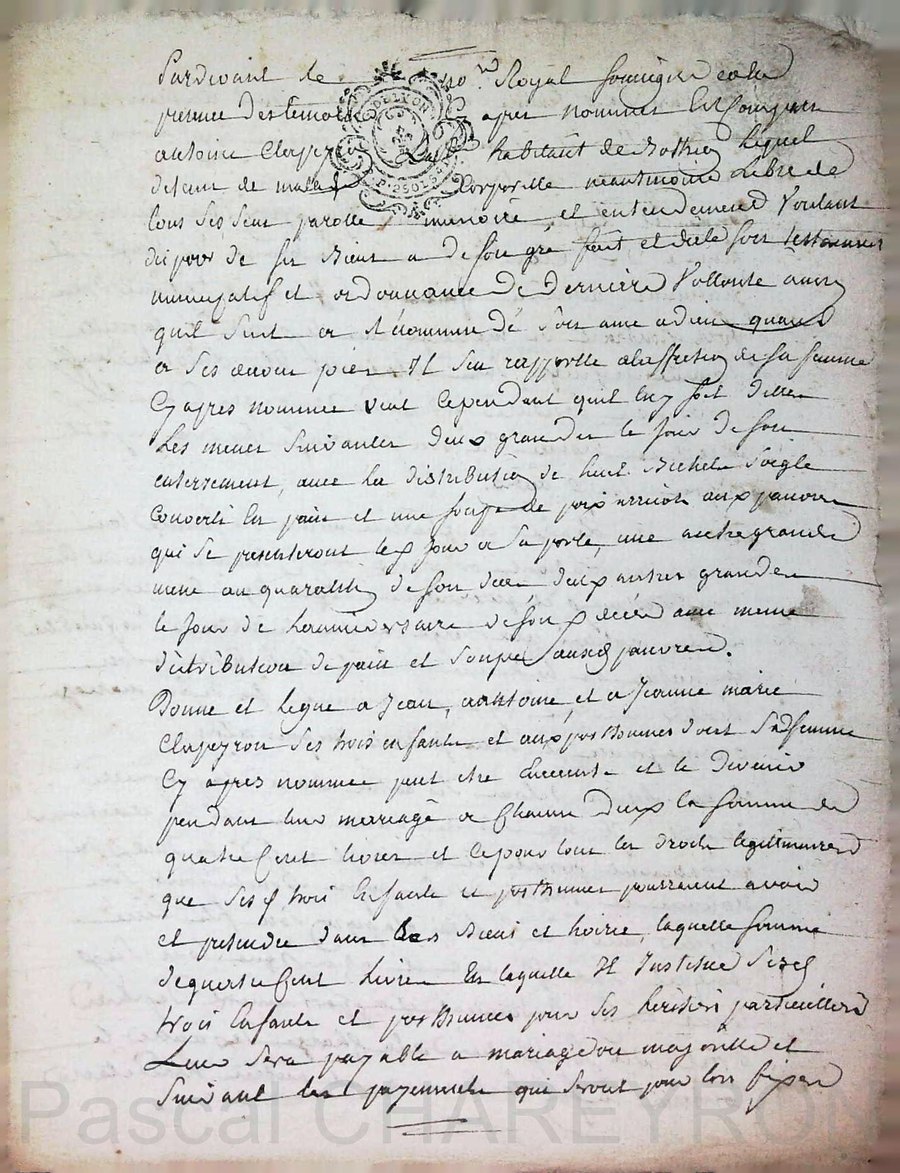 Pardevant le no.re Royal soussigné et en
presence des temoins apres nommés est comparu
antoine Clapeyron habitant de Lequel
detenu de maladie Corporelle neantmoins Libre de
tous ses sens parolle memoire et entendement Voulant
disposer de ses Biens a de son gré fait et dicté son testament
nuncupatif et ordonnance de derniere Vollonté
quil suit a recommandé son ame a dieu quand
a ses œuvres pies Il sen rapporte a la de sa femme
Cy apres nommée veut Cependant quil luy soit dittes
Les messes suivantes deux grandes le jour de son
enterrement, avec la distribution de huit Bichets Soigle
Converti en pain et une soupe de pois aux pauvres
qui se presenteront led jour a sa porte, une autre grande
messe au de son deces deux autres grandes
le jour de Lanniversaire de son d deces avec meme
distribution de pain et soupe auxd pauvres.
Donne et Legue a Jean, antoine, et a Jeanne marie
Clapeyron ses trois enfants et aux posthumes dont Sad femme
Cy apres nommée peut etre Enceinte et le devenir
pendant leur mariage a Chacun deux la somme de
quatre Cent livres et ce pour tout les droits legitimaires
que sesd trois Enfants et posthumes pourroient avoir
et pretendre dans ses Biens et hoirie, laquelle somme
de quatre Cent Livres En laquelle Il Institue sesd
trois Enfants et posthumes pour ses heritiers particulliers
Leur sera payable a mariage ou majorité et
suivant les payements qui seront pour lors fixés
Pascal CHAREYRON